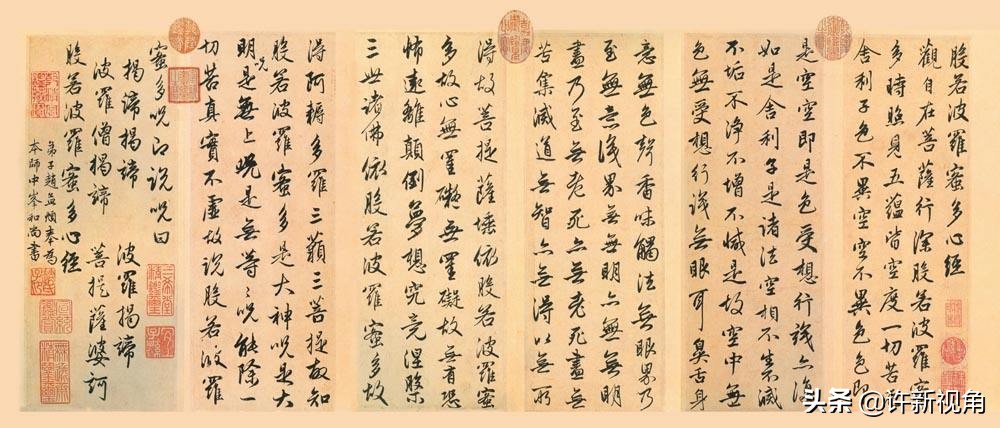 般若波羅蜜多心經
觀自在菩薩行深般若波羅蜜
多時照見五蘊皆空度一切苦厄
舍利子色不異空空不異色色即
是空空即是色受想行識亦復
如是舍利子是諸法空相不生不滅
不垢不淨不增不減是故空中無
色無受想行識無眼耳鼻舌身
意無色聲香味觸法無眼界乃
至無意識界無無明亦無無明
盡乃至無老死亦無老死盡無
苦集滅道無智亦無得以無所
得故菩提薩埵依般若波羅蜜
多故心無罣礙無罣礙故無有恐
怖遠離顛倒夢想究竟涅槃
三世諸佛依般若波羅蜜多故
得阿耨多羅三藐三菩提故知
般若波羅蜜多是大神咒是大
明咒是無上咒是無等等咒能除一
切苦真實不虛故說般若波羅
蜜多咒即說咒曰
揭諦揭諦 波羅揭諦
波羅僧揭諦 菩提薩婆訶
般若波羅蜜多心經
弟子趙孟頫奉為
本師中峯和尚書
头条@许新视角